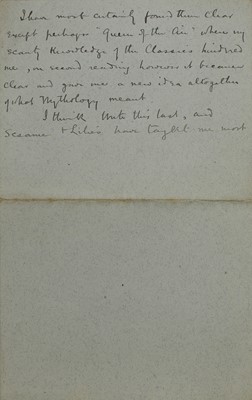 I have most certainly found them clear
except perhaps "Queen of the Air" where my
scanty Knowledge of the Classics hindered
me, on second reading however it became
clear and gave me a new idea altogether
of what Mythology meant
I think Unto this last, and
Sesame & Lilies have taught me most